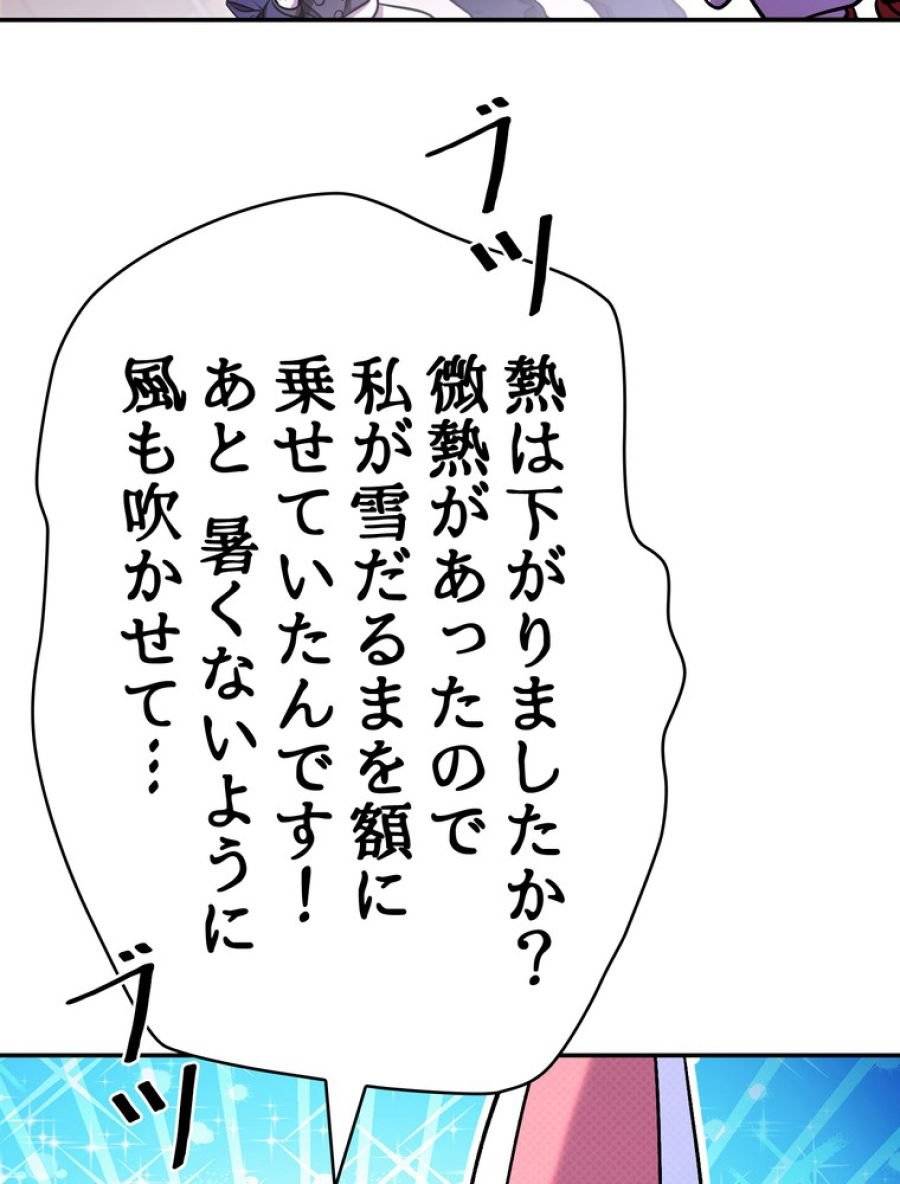 ブル
熱は下がりましたか？
微熱があったので
私が雪だるまを額に
乗せていたんです！
あと 暑くないように
風も吹かせて…
ブル